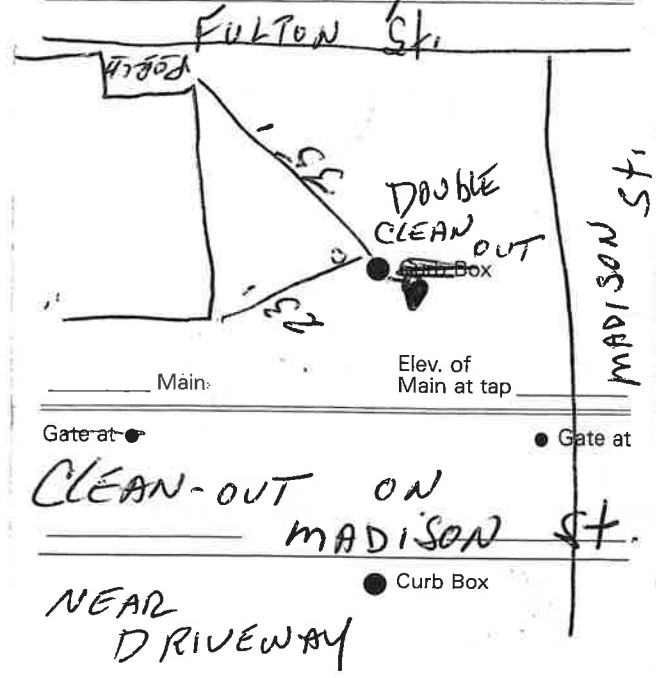 FULTON St.
PORCH
DOUBLE
CLEAN OUT
Curb Box
MADISON St.
Main
Elev. of
Main at tap
Gate at
Gate at
CLEAN-OUT ON
MADISON St.
Curb Box
NEAR
DRIVEWAY